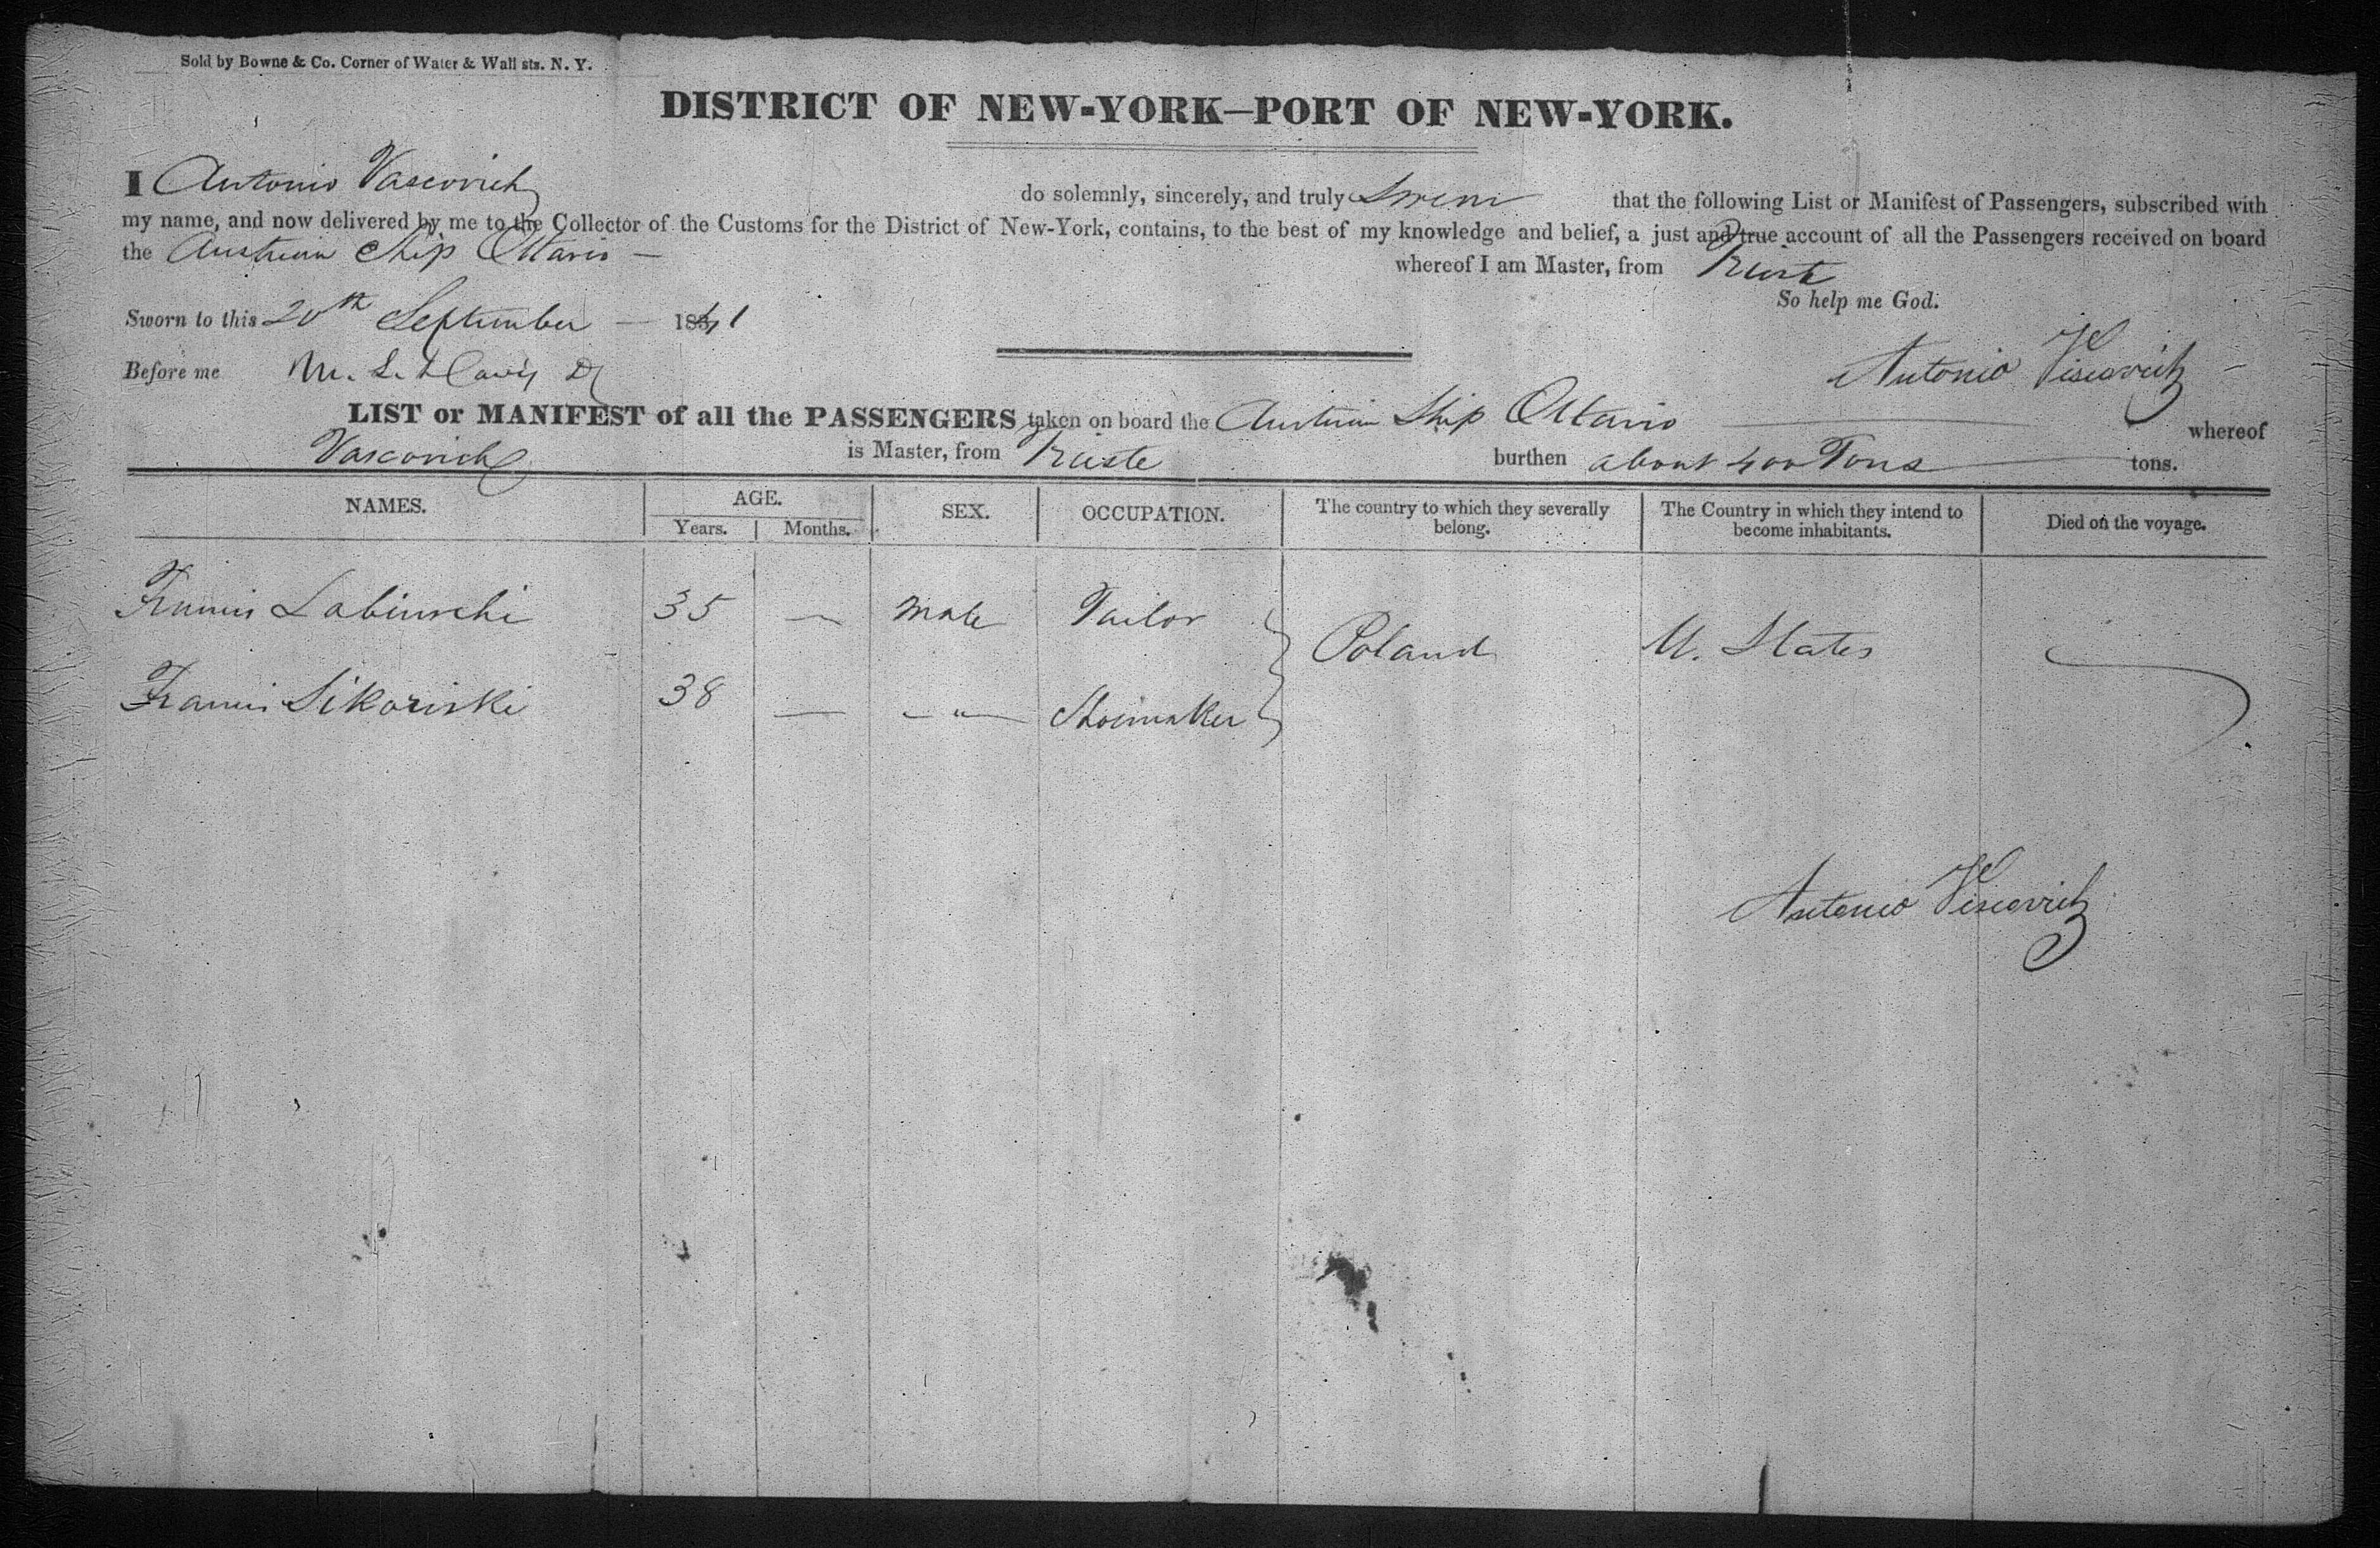 Sold by Bowne & Co. Corner of Water & Wall sts. N. Y.
DISTRICT OF NEW-YORK—PORT OF NEW-YORK.
I Antonio Vascovich do solemnly, sincerely, and truly Swear that the following List or Manifest of Passengers, subscribed with
my name, and now delivered by me to the Collector of the Customs for the District of New-York, contains, to the best of my knowledge and belief, a just and true account of all the Passengers received on board
the Austrian Ship Ottavio — whereof I am Master, from Trieste
So help me God.
Sworn to this 20th September — 1841
Before me M. L. Davis
Antonio Viscovich
LIST or MANIFEST of all the PASSENGERS taken on board the Austrian Ship Ottavio whereof
Vascovich is Master, from Trieste burthen about 400 Tons tons.
NAMES. AGE. SEX. OCCUPATION. The country to which they severally belong. The Country in which they intend to become inhabitants. Died on the voyage.
Years. Months.
Francis Labinschi 35 — Male Tailor
Poland U. States
Francis Sikoriski 38 — — " — Shoemaker
Antonio Viscovich